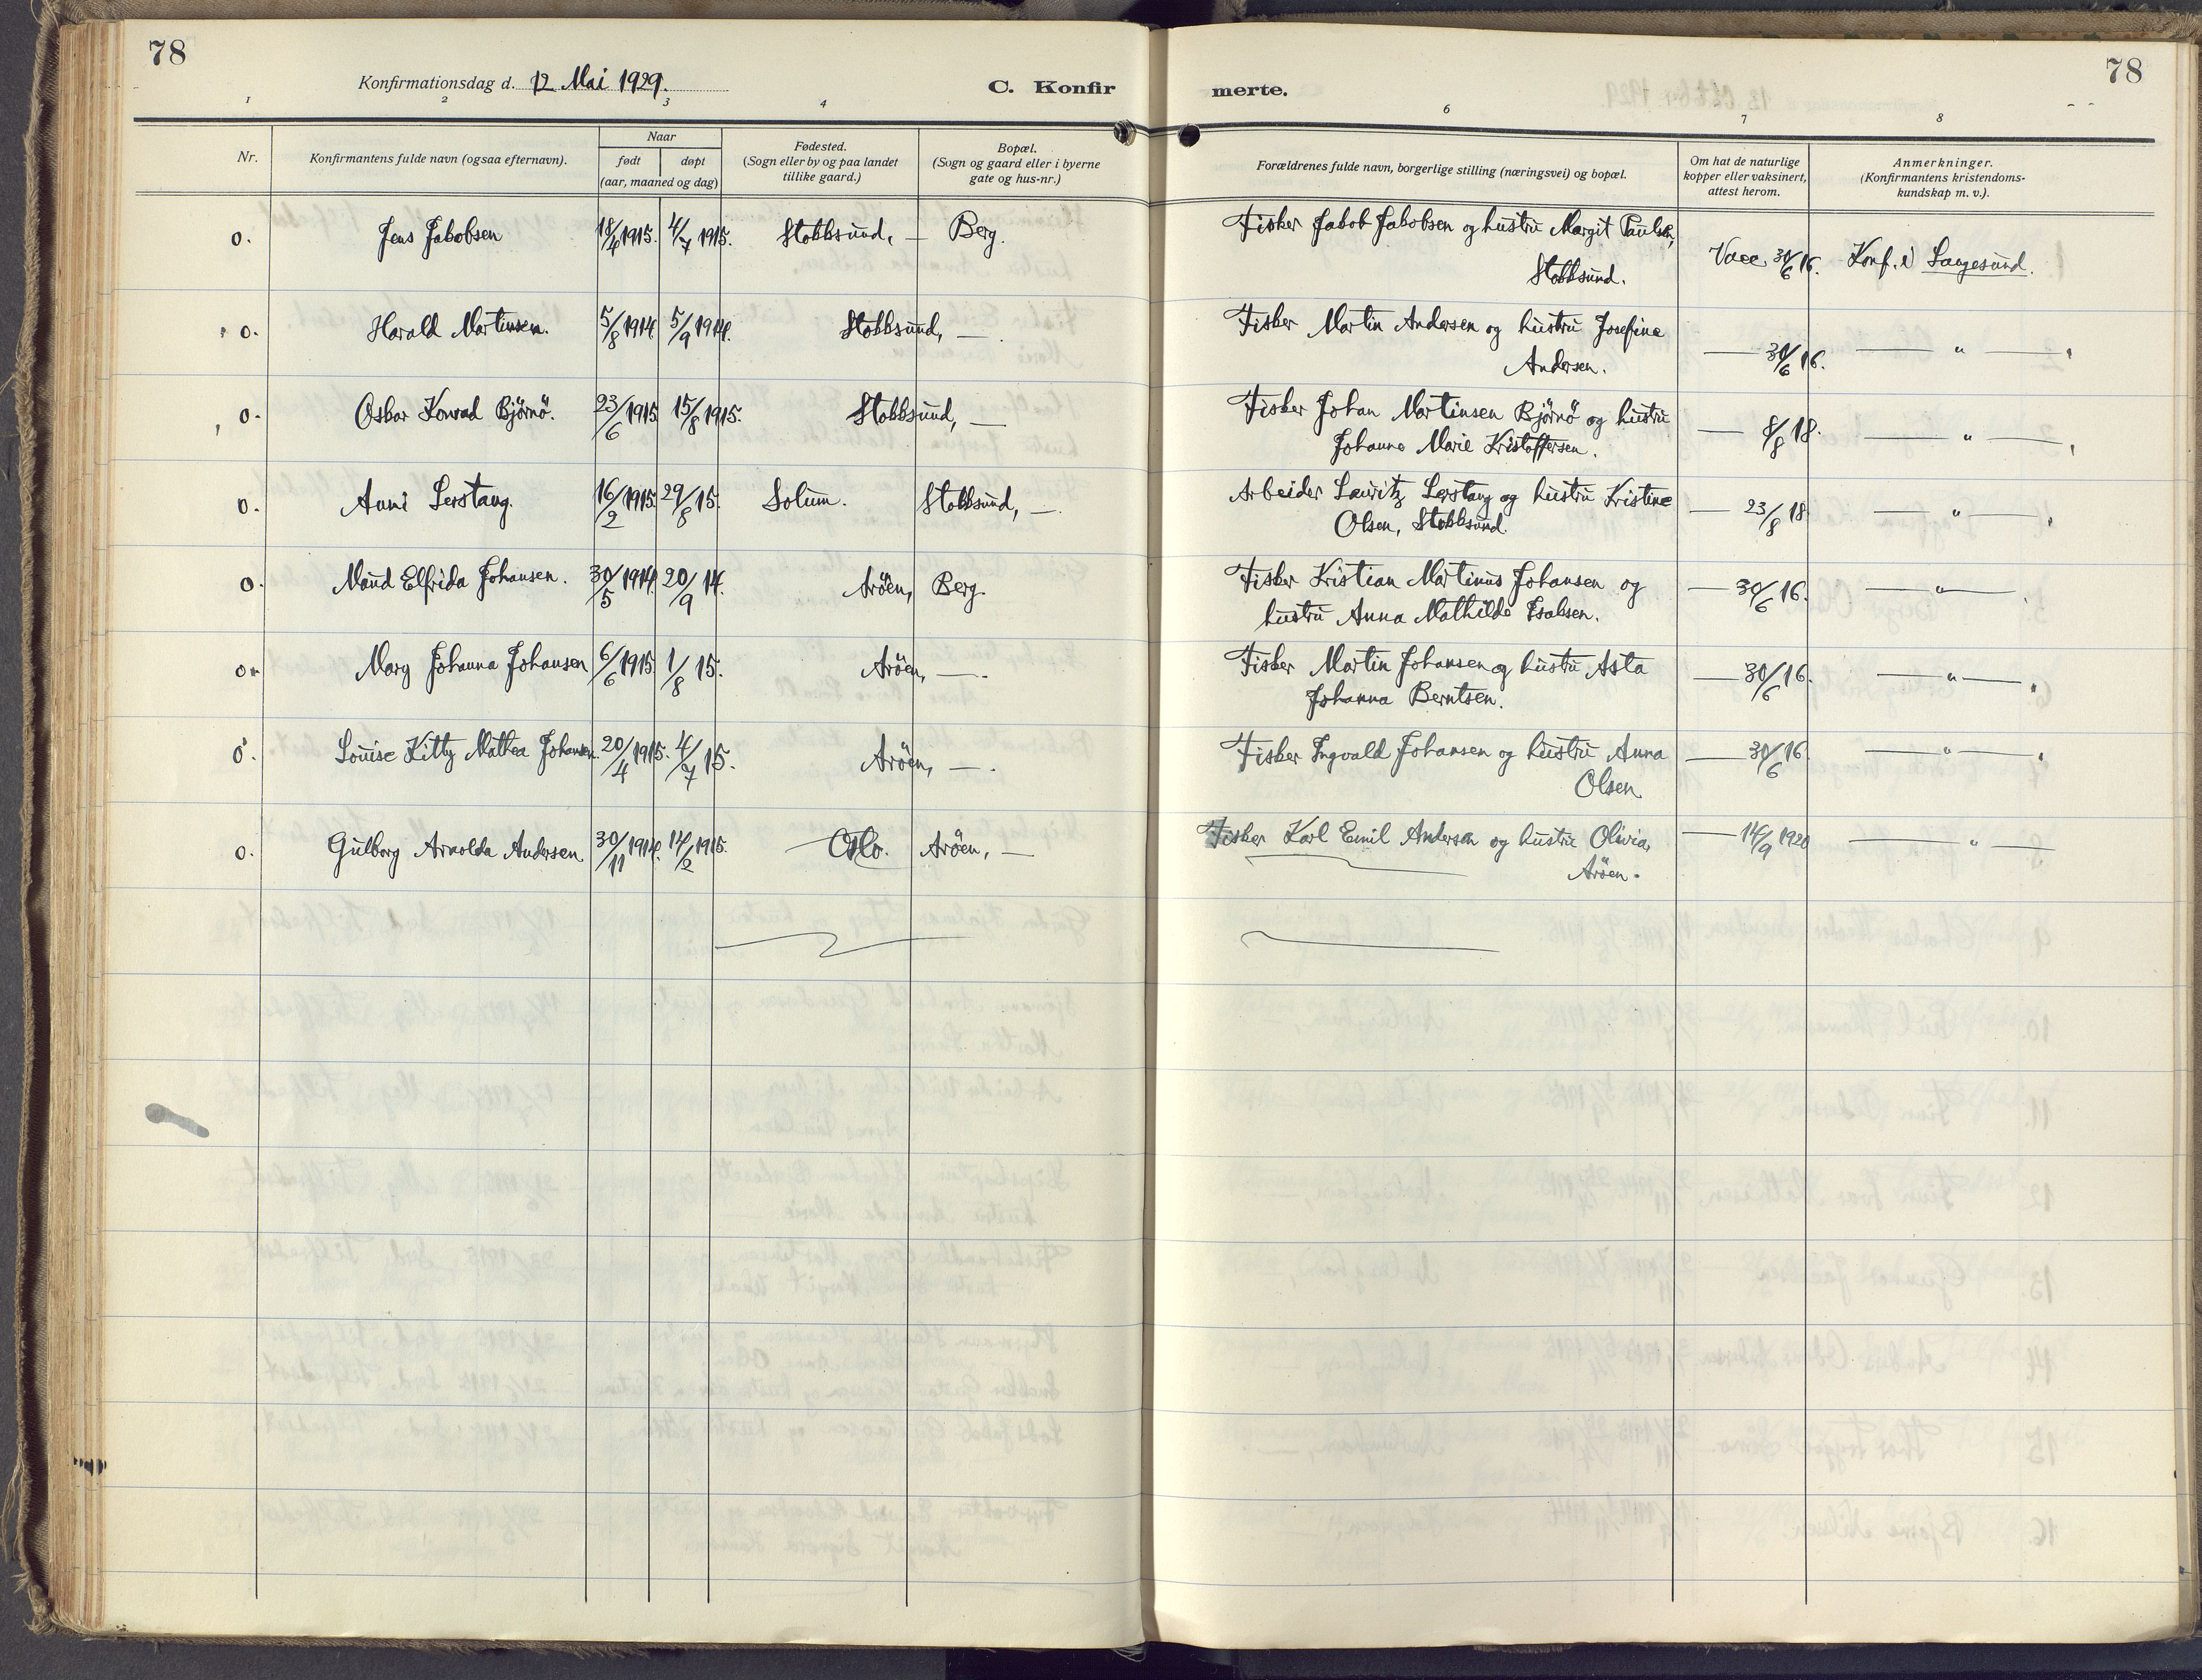 78
78
Konfirmationsdag d. 12 Mai 1929.
C. Konfir
merte.
1 2 3 4 6 7 8
Nr.
Konfirmantens fulde navn (ogsaa efternavn).
Naar
født
døpt
(aar, maaned og dag)
Fødested.
(Sogn eller by og paa landet
tillike gaard.)
Bopæl.
(Sogn og gaard eller i byerne
gate og hus-nr.)
Forældrenes fulde navn, borgerlige stilling (næringsvei) og bopæl.
Om hat de naturlige
kopper eller vaksinert,
attest herom.
Anmerkninger.
(Konfirmantens kristendoms-
kundskap m. v.).
0. Jens Jakobsen 18/4 1915. 4/7 1915. Stokksund, — Berg. Fisker Jakob Jakobsen og hustru Margit Paulsen,
Stokksund. Vacc 30/6 16. Konf. i Langesund.
0. Harald Martinsen. 5/8 1914 5/9 1914. Stokksund, — . Fisker Martin Andersen og hustru Josefine
Andersen. — 30/6 16. — " —
0. Oskar Konrad Bjørnø. 23/6 1915 15/8 1915. Stokksund, — Fisker Johan Martinsen Bjørnø og hustru
Johanne Marie Kristoffersen. — 8/8 18. — " —
0. Anni Lerstang. 16/2 1915. 29/8 15. Solum. Stokksund, — . Arbeider Lauritz Lerstang og hustru Kristine
Olsen, Stokksund. — 23/8 18 — " —
0. Maud Elfrida Johansen. 30/5 1914. 20/9 14. Arøen, Berg. Fisker Kristian Martinus Johansen og
hustru Anna Mathilde Isaksen. — 30/6 16. — " —
0. Mary Johanna Johansen 6/6 1915. 1/8 15. Arøen, — . Fisker Martin Johansen og hustru Asta
Johanna Berntsen. — 30/6 16. — " —
0. Louise Kitty Mathea Johansen. 20/4 1915. 4/7 15. Arøen, — . Fisker Ingvald Johansen og hustru Anna
Olsen — 30/6 16. — " —
0. Gulborg Arnolda Andersen. 30/11 1914. 14/2 1915. Oslo. Arøen, — Fisker Karl Emil Andersen og hustru Olivia,
Arøen. — 14/9 1920 — " —